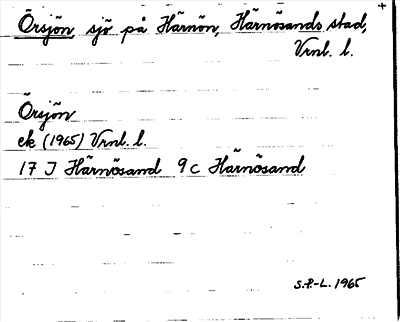 Örsjön, sjö på Härnön, Härnösands stad,
Vrnl. l.
Örsjön
ek (1965) Vrnl. l.
17 J Härnösand 9 c Härnösand
S.P.-L. 1965